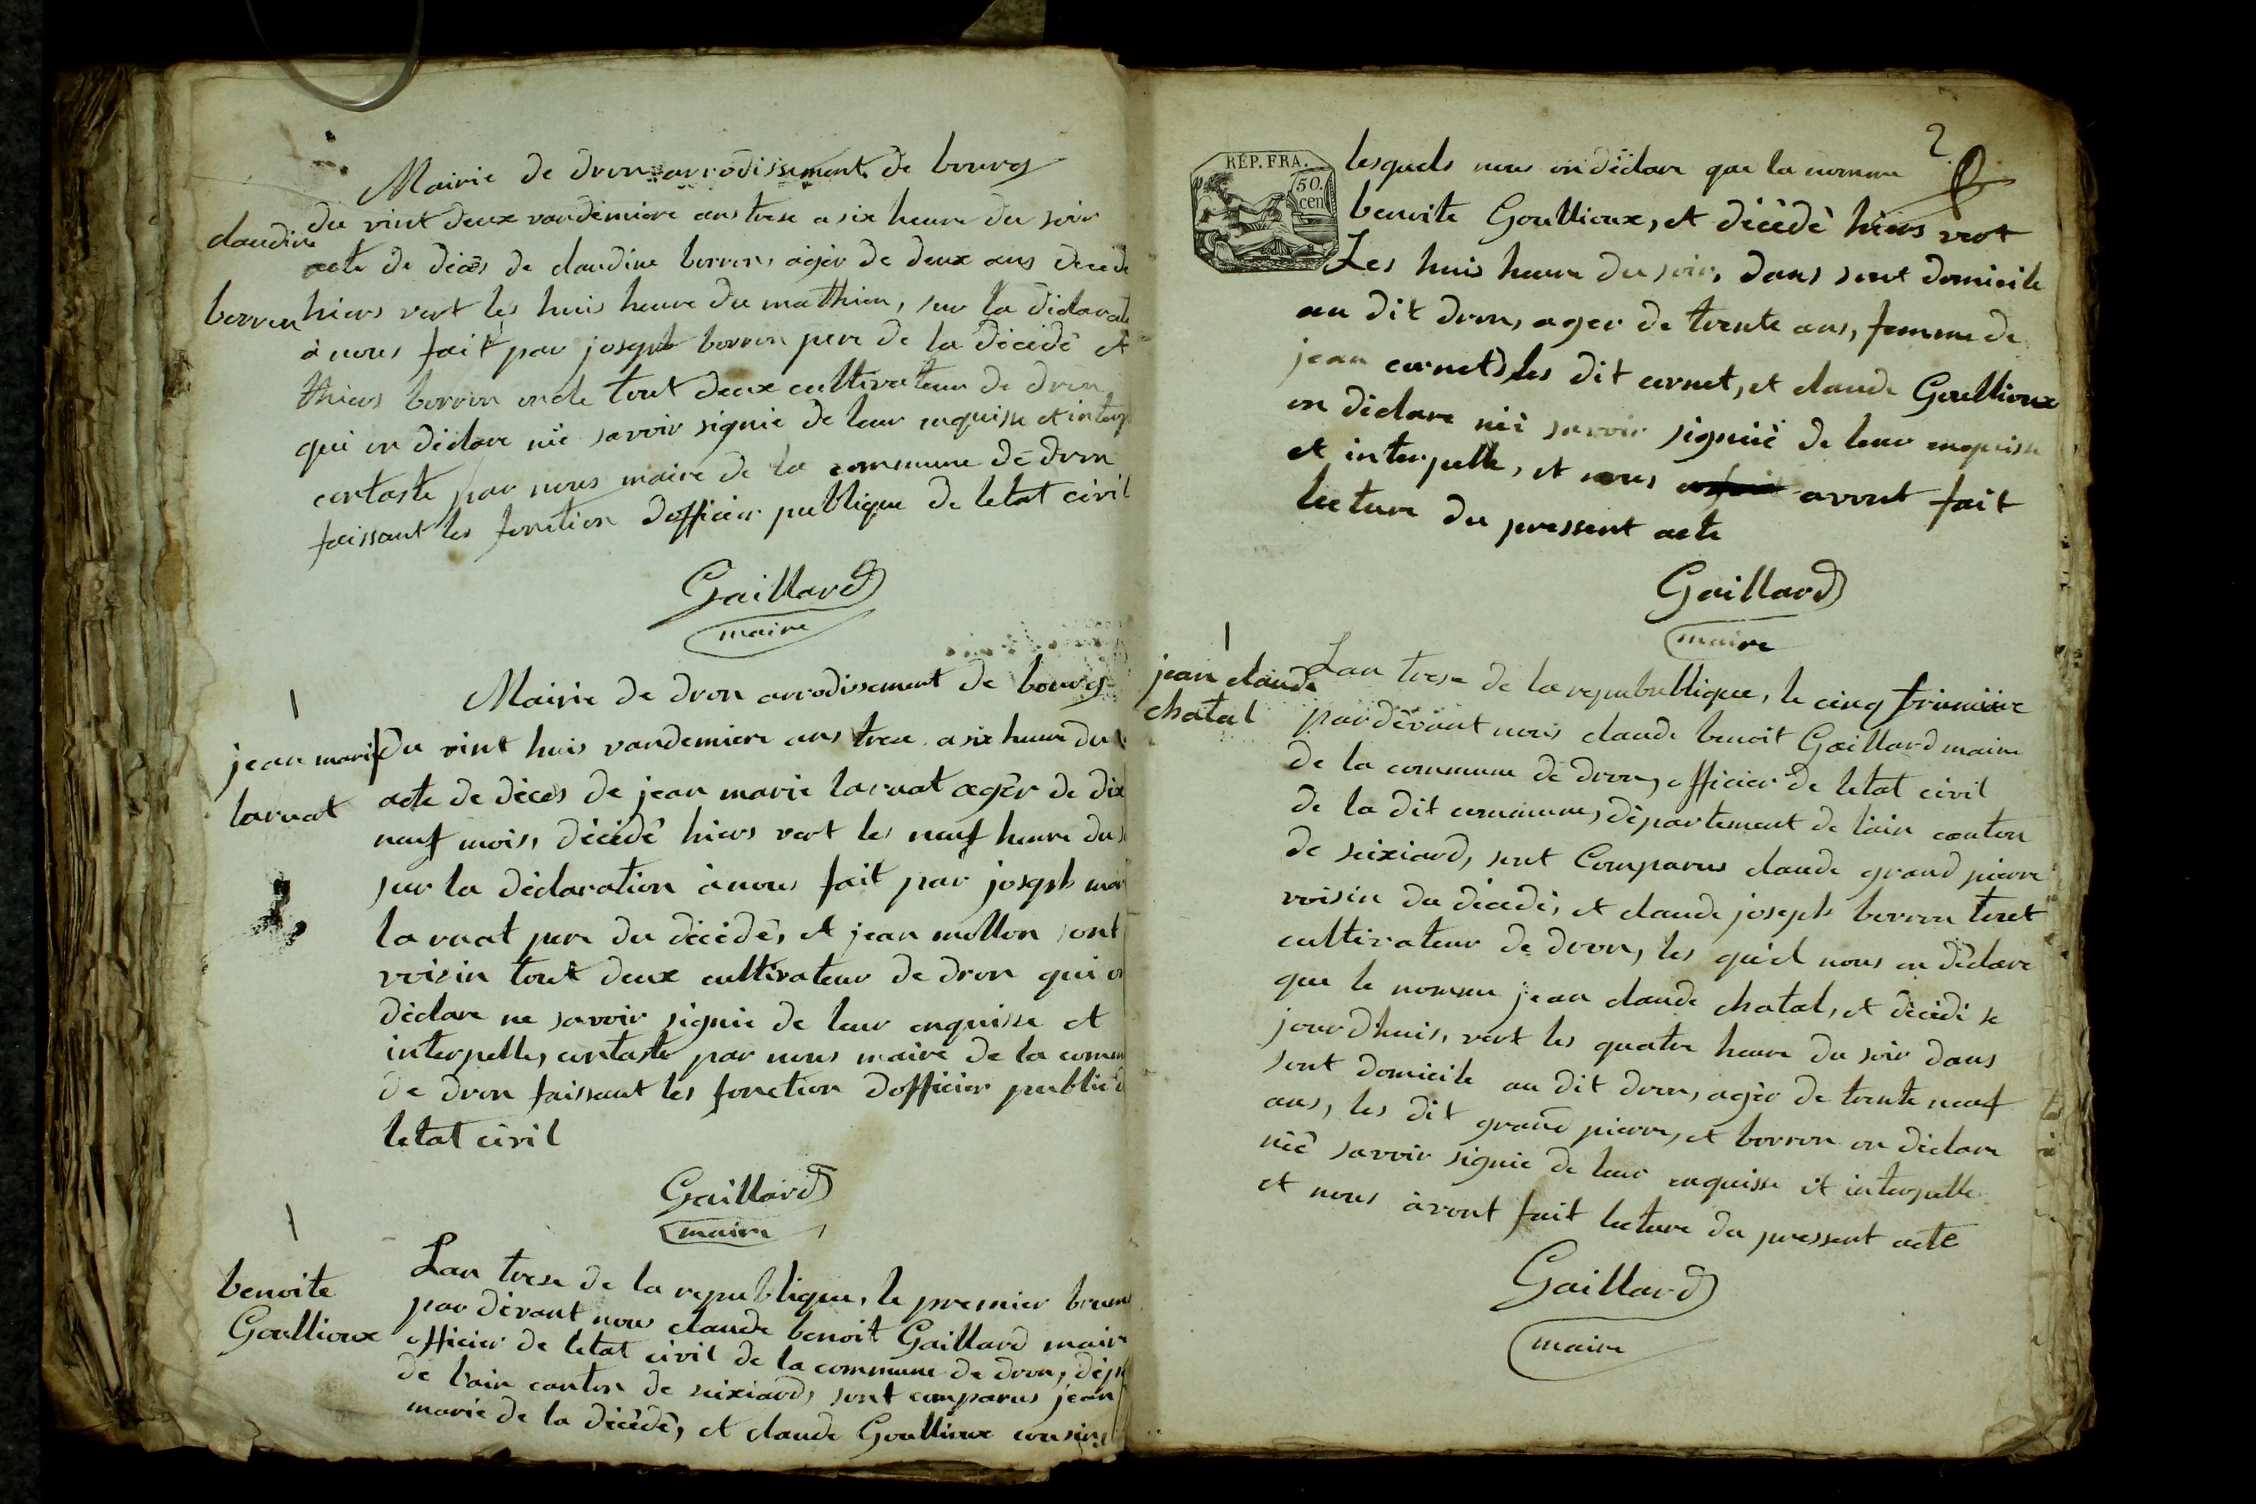 Mairie de dron arrodissement de bourg
du vint deux vandemiere ans trese a six heure du soir
claudine
acte de décès de claudine borron, agér de deux ans décédé
borron
hiers vert les huis heure du mathien, sur la diclarati
à nous fait par joseph borron pere de la décédé et
thiers borron oncle tout deux cultivateur de dron,
qui on déclare nië savoir signié de leur enquisse et interp
contaste par nous maire de la commune de dron
faissant les fonction dofficier publique de letat civil
Gaillard
maire
Mairie de dron arrodissement de bourg
jean marie
Du vint huis vandemiere ans trese a six heure du
larnat
acte de décès de jean marie larnat agér de dix
neuf mois, décédé hiers vert les neuf heure du s
sur la déclaration à nous fait par joseph mar
larnat pere du décédé, et jean mollon sont
voisin tout deux cultivateur de dron qui on
déclare ne savoir signie de leur enquisse et
interpelle, contaste par nous maire de la comm
de dron faissant les fonction dofficier public d
letat civil
Gaillard
maire
benoite
Goullioux
Lan trese de la republique, le premier brum
par dévant nous claude benoit Gaillard maire
officier de letat civil de la commune de dron, dép
de l'ain canton de seixiard, sont comparus jean
marie de la décédé, et claude Goullioux cousin,
2
RÉP. FRA.
50.
cen
lesquels nous on déclare que la nomme
benoite Goullioux, et décédé hiers vert
Les huis heure du soir, dans sont domicile
au dit dron, ager de trente ans, femme de
jean cornet, les dit cornet, et claude Goullioux
on déclare nié savoir signié de leur enquisse
et interpelle, et nous avont fait
lecture du pressent acte
Gaillard
maire
jean claude
chatal
Lan trese de la repubublique, le cinq frimiiire
par dévant nous claude benoit Gaillard maire
de la commune de dron, officier de letat civil
de la dit commune, département de l'ain canton
de seixiard, sont Comparus claude grand pierre
voisin du décédé, et claude joseph borron tout
cultivateur de dron, les quél nous on déclare
que le nomme jean claude chatal, et décédé se
jourdhuis, vert les quatre heure du soir dans
sont domicile au dit dron, agér de trente neuf
ans, les dit grand pierre, et borron on déclare
nié savoir signie de leur enquisse et interpelle
et nous àvont fait lecture du pressent acte
Gaillard
maire